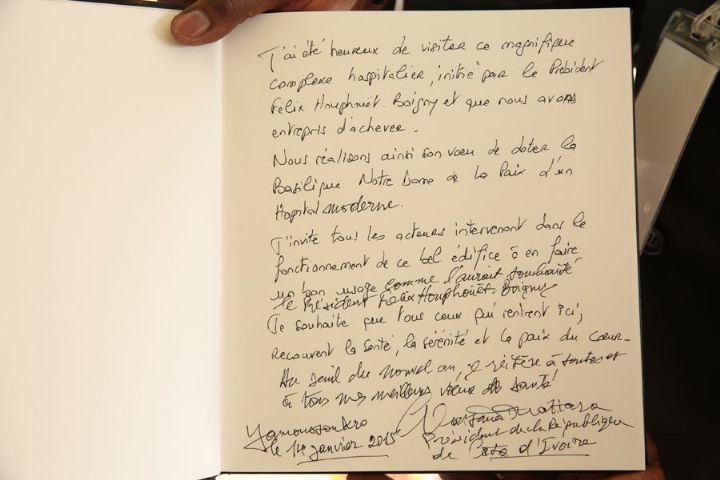 J'ai été heureux de visiter ce magnifique
complexe hospitalier, initié par le Président
Félix Houphouët-Boigny et que nous avons
entrepris d'achever.
Nous réalisons ainsi son vœu de doter la
Basilique Notre Dame de la Paix d'un
Hopital moderne.
J'invite tous les acteurs intervenant dans le
fonctionnement de ce bel édifice à en faire
un bon usage comme l'aurait souhaité
le Président Felix Houphouët-Boigny
Je souhaite que tous ceux qui rentrent ici,
recouvrent la santé, la sérénité et la paix du cœur.
Au seuil du nouvel an, je réitère à toutes et
à tous mes meilleurs vœux de santé
Yamoussoukro
le 14 janvier 2015
Alassane Ouattara
Président de la République
de d'Ivoire